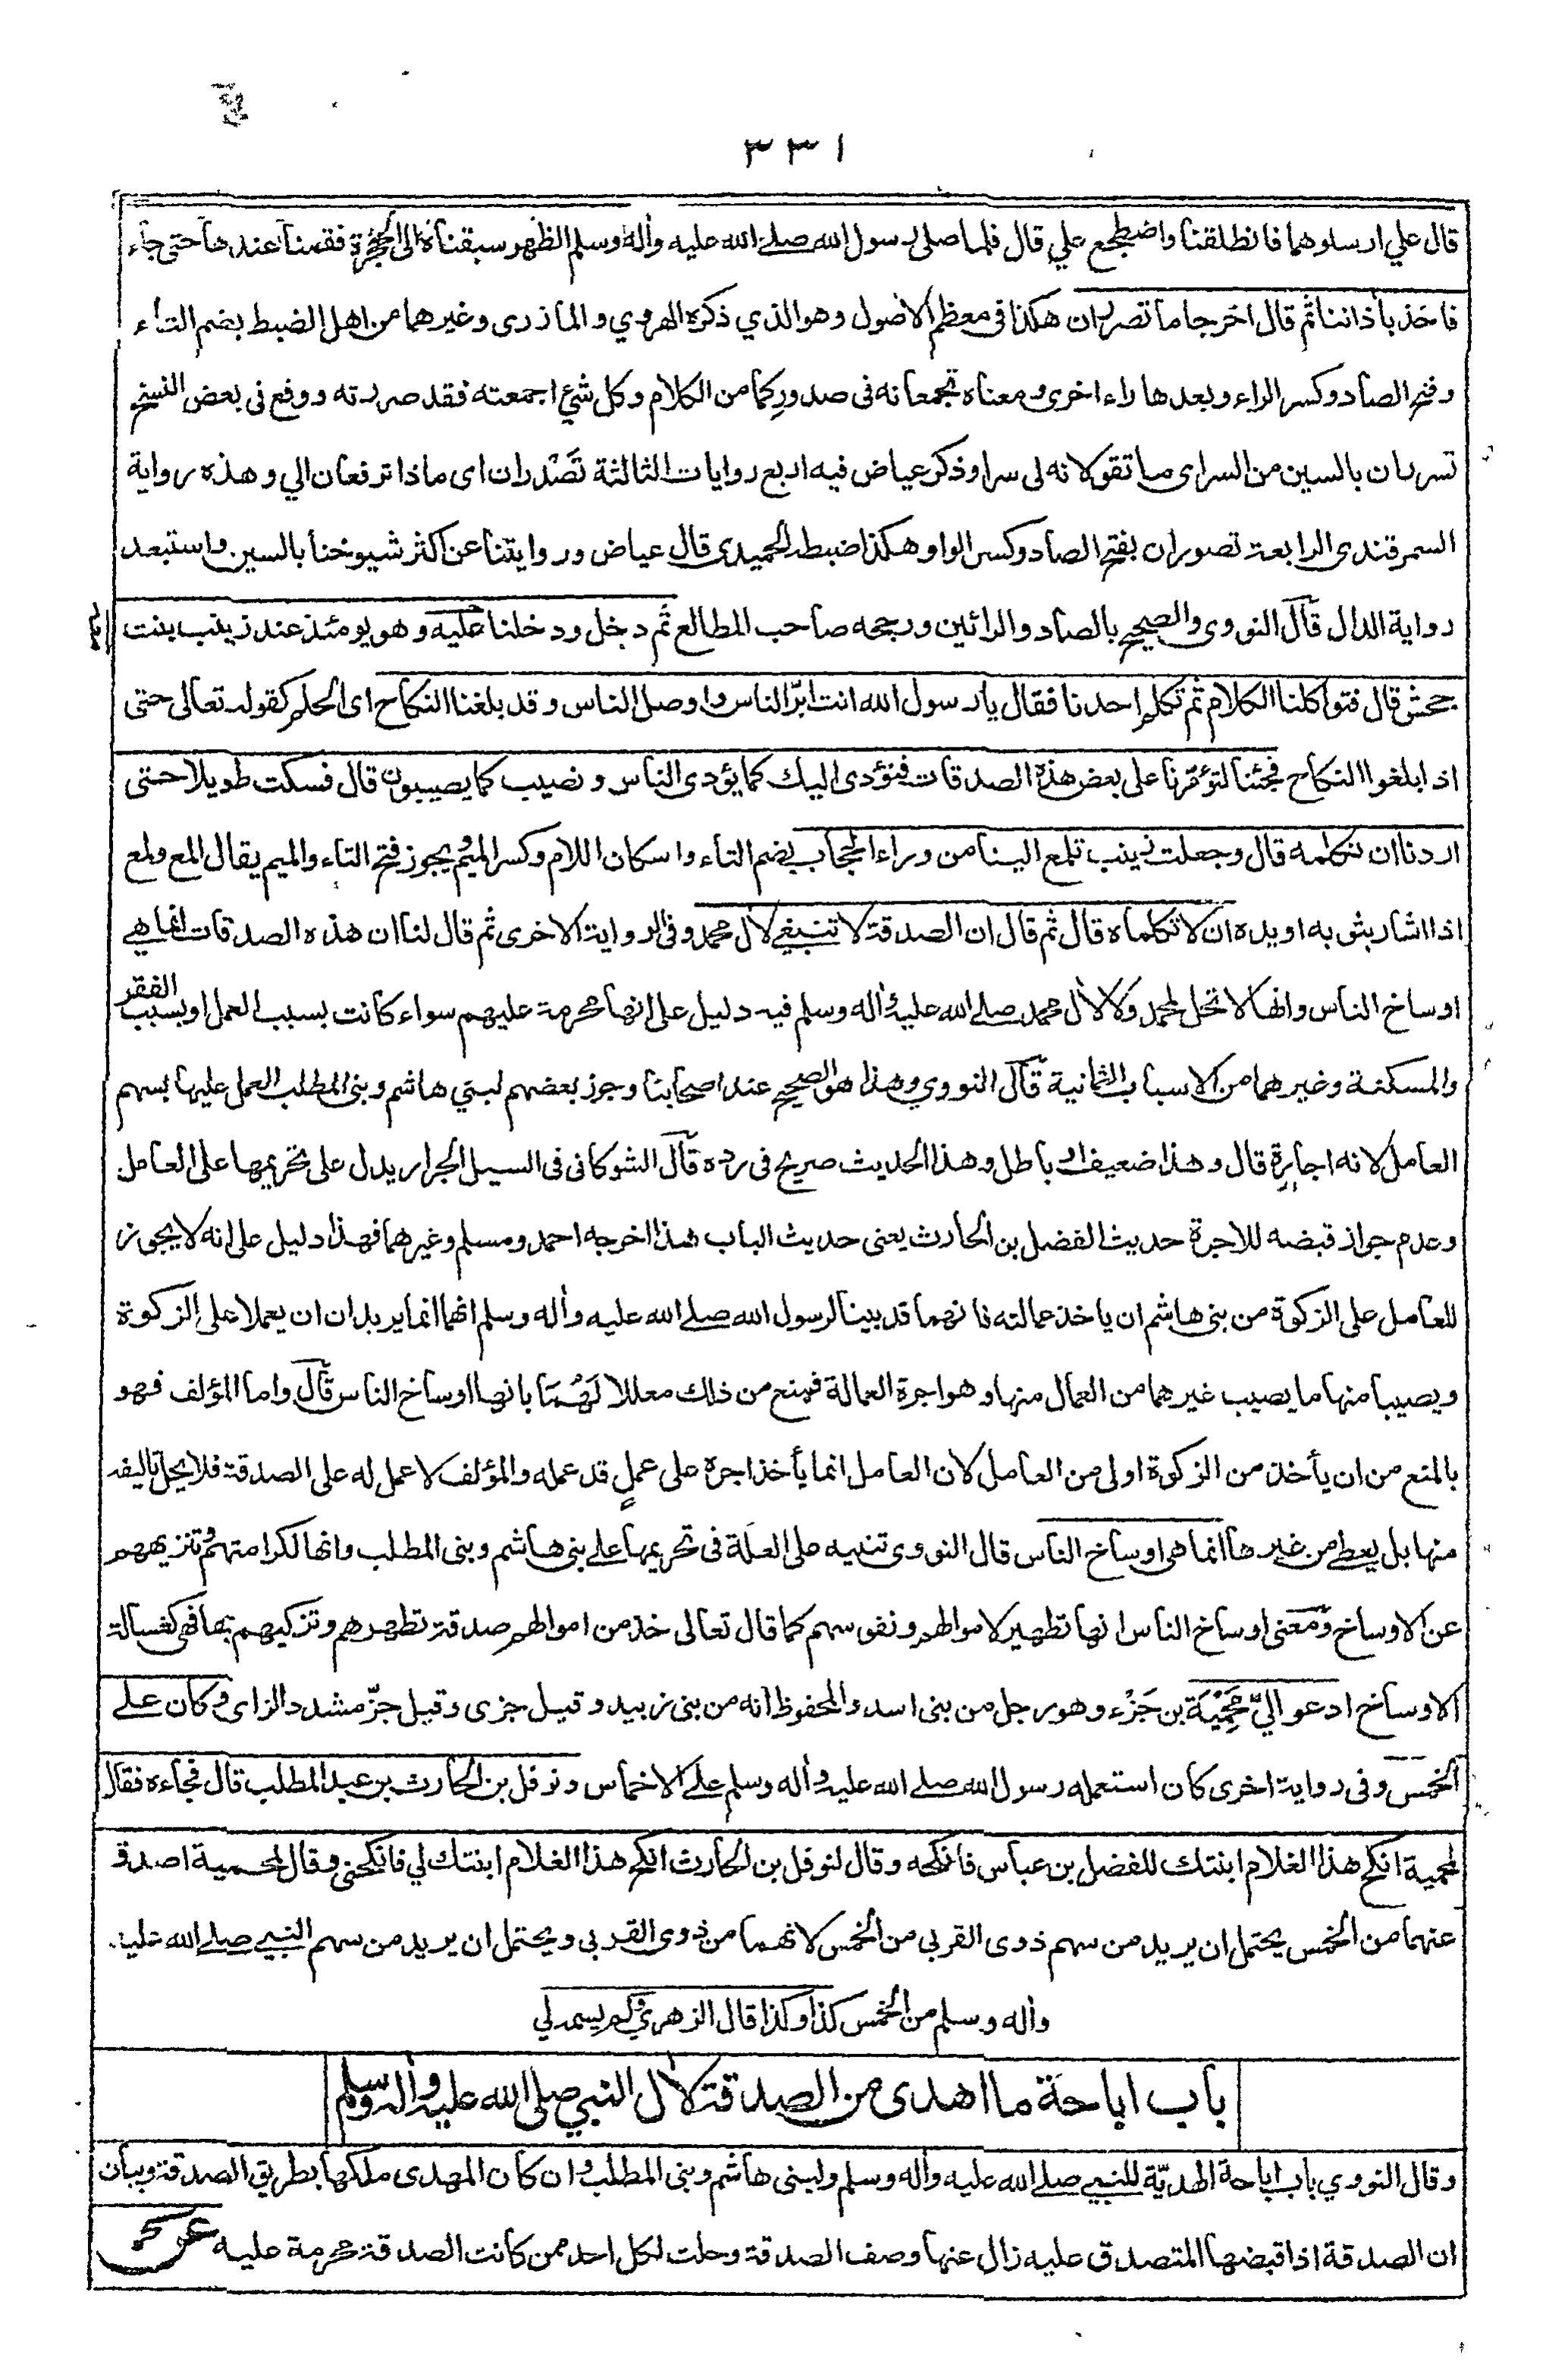 ٣٣١
قال علي ارسلوهما فانطلقنا واضطجع علي قال فلما صلى رسول الله صلى الله عليه وأله وسلم الظهر سبقناه الى الحجرة فقمنا عندها حتى جاء
فاخذ بأذاننا ثم قال اخرجا ما تصرران هكذا فى معظم الاصول وهو الذي ذكره الهروي والمازرى وغيرهما من اهل الضبط بضم التاء
وفتح الصاد وكسر الراء وبعدها راء اخرى ومعناه تجمعانه فى صدوركما من الكلام وكل شئ اجمعته فقد صررته ووقع فى بعض النسخ
تسرران بالسين من السراى ما تقولانه لى سرا وذكر عياض فيه اربع روايات الثالثة تَصْدُران اى ماذا ترفعان الي وهذه رواية
السمرقندى الرابعة تصوران بفتح الصاد وكسر الواو وهكذا ضبطه الحميدى قال عياض وروايتنا عن اكثر شيوخنا بالسين واستبعد
رواية الدال قال النووى والصحيح بالصاد والرائين ورجحه صاحب المطالع ثم دخل ودخلنا عليه وهو يومئذ عند زينب بنت
جحش قال فتواكلنا الكلام ثم تكلم احدنا فقال يا رسول الله انت ابرّ الناس واوصل الناس وقد بلغنا النكاح اى الحلم كقوله تعالى حتى
اذا بلغوا النكاح فجئنا لتؤمّرنا على بعض هذه الصدقات فنؤدى اليك كما يؤدى الناس ونصيب كما يصيبون قال فسكت طويلا حتى
اردنا ان نكلمه قال وجعلت زينب تلمع الينا من وراء الحجاب بضم التاء واسكان اللام وكسر الميم ويجوز فتح التاء والميم يقال المع ولمع
اذا اشار بثوبه او يده ان لا تكلماه قال ثم قال ان الصدقة لا تنبغي لأل محمد وفى الرواية الاخرى ثم قال لنا ان هذه الصدقات انما هي
اوساخ الناس وانها لا تحل لمحمد ولا لأل محمد صلى الله عليه وأله وسلم فيه دليل على انها محرمة عليهم سواء كانت بسبب العمل او بسبب الفقر
والمسكنة وغيرهما من الاسباب الثمانية قال النووي وهذا هو الصحيح عند اصحابنا وجوز بعضهم لبني هاشم وبنى المطلب العمل عليها بسهم
العامل لانه اجارة قال وهذا ضعيف او باطل وهذا الحديث صريح فى رده قال الشوكانى فى السيل الجرار يدل على تحريمها على العامل
وعدم جواز قبضه للاجرة حديث الفضل بن الحارث يعنى حديث الباب هذا اخرجه احمد ومسلم وغيرهما فهذا دليل على انه لا يجوز
للعامل على الزكوة من بنى هاشم ان ياخذ عمالته فانهما قد بينا لرسول الله صلى الله عليه وأله وسلم انهما انما يريدان ان يعملا على الزكوة
ويصيبا منها ما يصيب غيرهما من العمال منها وهو اجرة العمالة فمنع من ذلك معللا لَهُمَا بانها اوساخ الناس قال واما المؤلف فهو
بالمنع من ان يأخذ من الزكوة اولى من العامل لان العامل انما يأخذ اجره على عملٍ قد عمله والمؤلف لا عمل له على الصدقة فلا يحل تاليفه
منها بل يعطى من غيرها انما هى اوساخ الناس قال النووى تنبيه على العلة فى تحريمها على بنى هاشم وبنى المطلب وانها لكرامتهم وتنزيههم
عن الاوساخ ومعنى اوساخ الناس انها تطهير لاموالهم ونفوسهم كما قال تعالى خذ من اموالهم صدقة تطهرهم وتزكيهم بها فهى كغسالة
الاوساخ ادعوا اليّ مَحْمِيَة بن جَزْء وهو رجل من بنى اسد والمحفوظ انه من بنى زبيد وقيل جزى وقيل جزّ مشدد الزاى وكان على
الخمس وفى رواية اخرى كان استعمله رسول الله صلى الله عليه وأله وسلم على الاخماس ونوفل بن الحارث بن عبد المطلب قال فجاءه فقال
لمحمية انكح هذا الغلام ابنتك للفضل بن عباس فانكحه وقال لنوفل بن الحارث انكح هذا الغلام ابنتك لي فانكحنى وقال لمحمية اصدق
عنهما من الخمس يحتمل ان يريد من سهم ذوى القربى من الخمس لانهما من ذوى القربى ويحتمل ان يريد من سهم النبي صلى الله عليه
وأله وسلم من الخمس كذا وكذا قال الزهري ولم يسمه لي
باب اباحة ما اهدى من الصدقة لأل النبي صلى الله عليه وأله وسلم
وقال النووي باب اباحة الهديّة للنبي صلى الله عليه وأله وسلم ولبنى هاشم وبنى المطلب وان كان المهدى ملكها بطريق الصدقة وبيان
ان الصدقة اذا قبضها المتصدق عليه زال عنها وصف الصدقة وحلت لكل احد ممن كانت الصدقة محرمة عليه عن